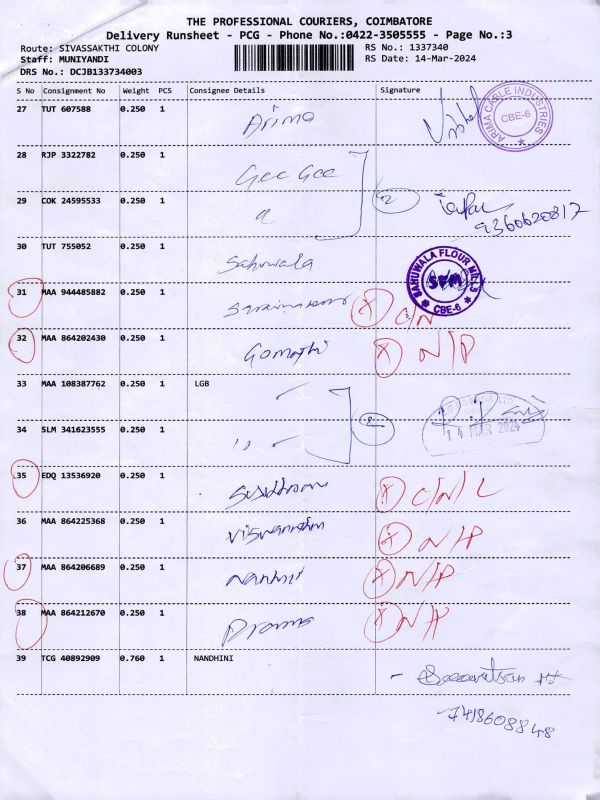 THE PROFESSIONAL COURIERS, COIMBATORE
Delivery Runsheet - PCG - Phone No.:0422-3505555 - Page No.:3
Route: SIVASSAKTHI COLONY RS No.: 1337340
Staff: MUNIYANDI RS Date: 14-Mar-2024
DRS No.: DCJB133734003
S No Consignment No Weight PCS Consignee Details Signature
27 TUT 607588 0.250 1 Arima
ARIMA CABLE INDUSTRIES CBE-6
28 RJP 3322782 0.250 1 Gee Gee
29 COK 24595533 0.250 1 2
9360620817
30 TUT 755052 0.250 1 Sahuwala
SAHUWALA FLOUR MILLS SFM CBE-6
31 MAA 944485882 0.250 1 X C/N
32 MAA 864202430 0.250 1 Gomathi X N/P
33 MAA 108387762 0.250 1 LGB
34 SLM 341623555 0.250 1 2
14 MAR 2024
35 EDQ 13536920 0.250 1 X C/N/L
36 MAA 864225368 0.250 1 X N/P
37 MAA 864206689 0.250 1 X N/P
38 MAA 864212670 0.250 1 X N/P
39 TCG 40892909 0.760 1 NANDHINI
7418608848